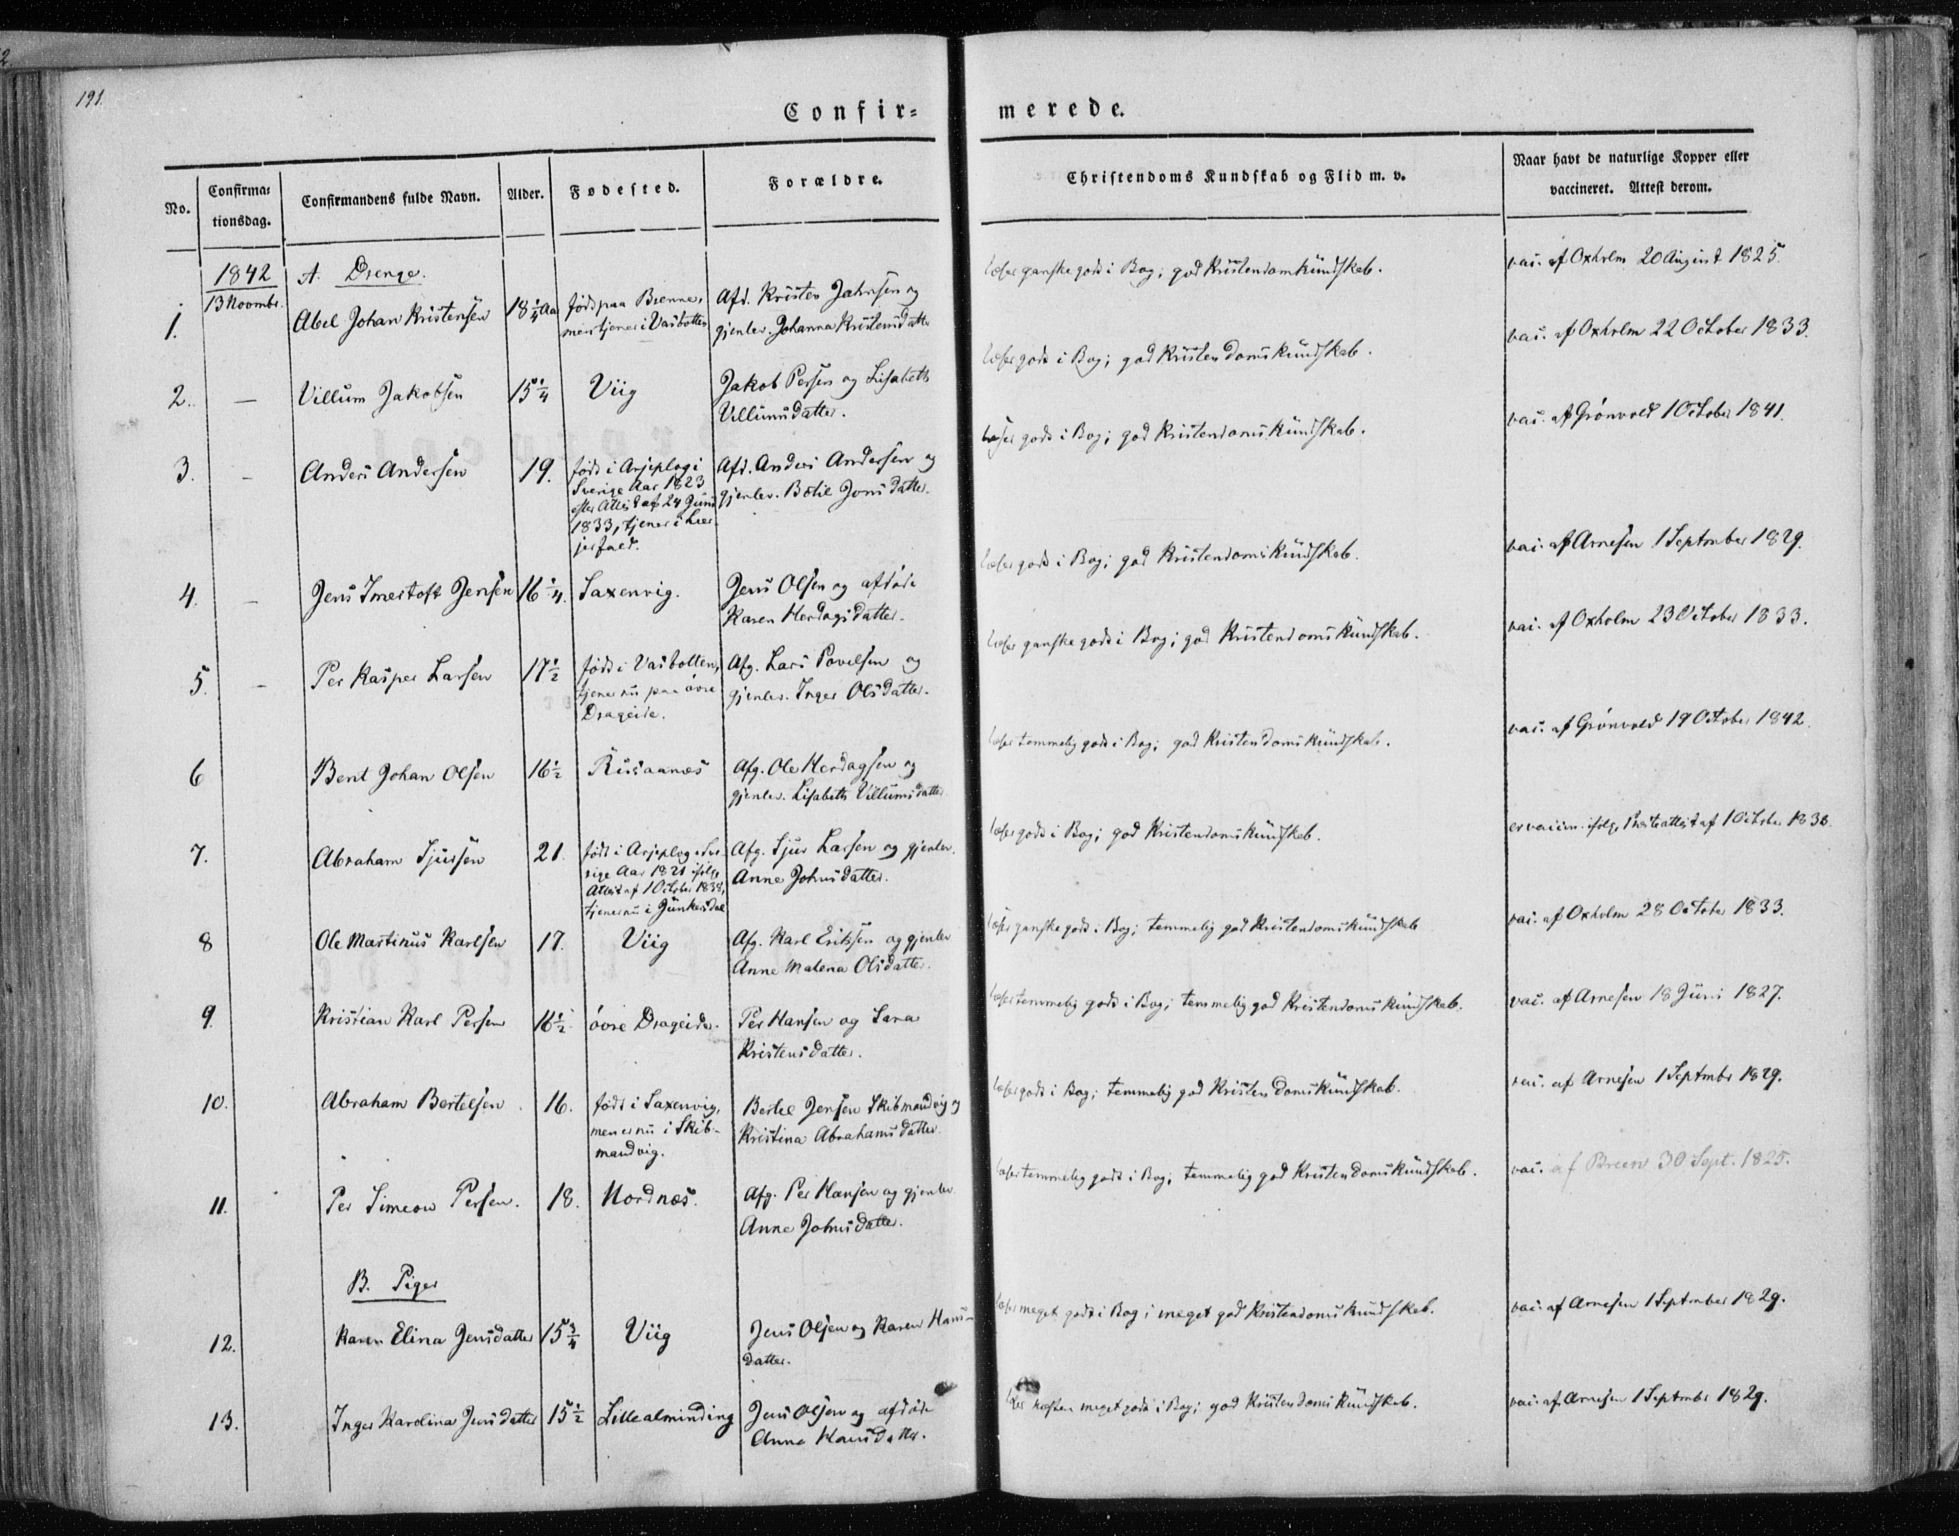 191.
Confir=
merede.
No.
Confirma=
tionsdag.
Confirmandens fulde Navn.
Alder.
Fødested.
Forældre.
Christendoms Kundskab og Flid m. v.
Naar havt de naturlige Kopper eller
vaccineret. Attest derom.
1842
13 Novmbr.
A. Drenge.
1.
Abel Johan Kristensen
18 1/4 Aa
født paa Brenne,
men tjener i Vasbotten
Afd. Kristen Jahnsen og
gjenlev. Johanna Kristensdatter
læser ganske godt i Bog; god Kristendomskundskab.
vac. af Oxholm 20 August 1825.
2.
—
Villum Jakobsen
15 1/4
Viig
Jakob Persen og Lisabeth
Villumsdatter.
læser godt i Bog; god Kristendomskundskab.
vac. af Oxholm 22 October 1833.
3.
-
Anders Andersen
19.
født i Arjeplog i
Sverige Aar 1823
efter Attest af 24 Juni
1833, tjener i
Afd. Anders Andersen og
gjenlev. Botil Jonsdatter.
læser godt i Bog; god Kristendomskundskab.
vac. af Grönvold 1 October 1841.
4.
—
Jens Imertoft Jensen
16 1/4.
Saxenvig.
Jens Olsen og afdøde
Karen Herdagsdatter.
læser godt i Bog; god Kristendomskundskab.
vac. af Arnesen 1 September 1829.
5.
-
Per Kasper Larsen
17 1/2
født i Vasbotten,
tjener nu paa övre
Drageide.
Afg. Lars Povelsen og
gjenlev. Inger Olsdatter.
læser ganske godt i Bog; god Kristendomskundskab.
vac. af Oxholm 23 October 1833.
6
Bent Johan Olsen
16 1/2
Rusaanæs
Afg. Ole Herdagsen og
gjenlev. Lisabeth Villumsdatter
læser temmelig godt i Bog; god Kristendomskundskab.
vac. af Grönvold 19 October 1842.
7.
Abraham Sjursen
21.
født i Arjeplog i Sve-
rige Aar 1821 ifølge
Attest af 1 October 1838,
tjener nu i Junkersdal
Afg. Sjur Larsen og gjenlev.
Anne Johnsdatter.
læser godt i Bog; god Kristendomskundskab.
er vaccin. ifølge Præsteattest af 1 October 1838.
8
Ole Martinus Karlsen
17.
Viig
Afg. Karl Eriksen og gjenlev
Anne Malena Olsdatter.
læser ganske godt i Bog; temmelig god Kristendomskundskab
vac. af Oxholm 28 October 1833.
9.
Kristian Karl Persen
16 1/2.
övre Drageide.
Per Hansen og Sara
Kristensdatter.
læser temmelig godt i Bog; temmelig god Kristendomskundskab.
vac. af Arnesen 18 Juni 1827.
10.
Abraham Bertelsen
16.
født i Saxenvig,
men er nu i Skib-
mandvig.
Bertel Jensen Skibmandvig og
Kristina Abrahamsdatter.
læser godt i Bog; temmelig god Kristendomskundskab.
vac. af Arnesen 1 Septmbr 1829.
11.
Per Simeon Persen.
18.
Nordnæs.
Afg. Per Hansen og gjenlev
Anne Johnsdatter.
læser temmelig godt i Bog; temmelig god Kristendomskundskab.
vac. af Breen 30 Sept. 1825.
B. Piger
12.
Karen Elina Jensdatter
15 3/4
Viig
Jens Olsen og Karen Hans-
datter.
læser meget godt i Bog; meget god Kristendomskundskab.
vac. af Arnesen 1 September 1829.
13.
Inger Karolina Jensdatter
15 1/2
Lillealminding
Jens Olsen og afdøde
Anne Hansdatter.
læser næsten meget godt i Bog; god Kristendomskundskab.
vac. af Arnesen 1 Septmbr 1829.